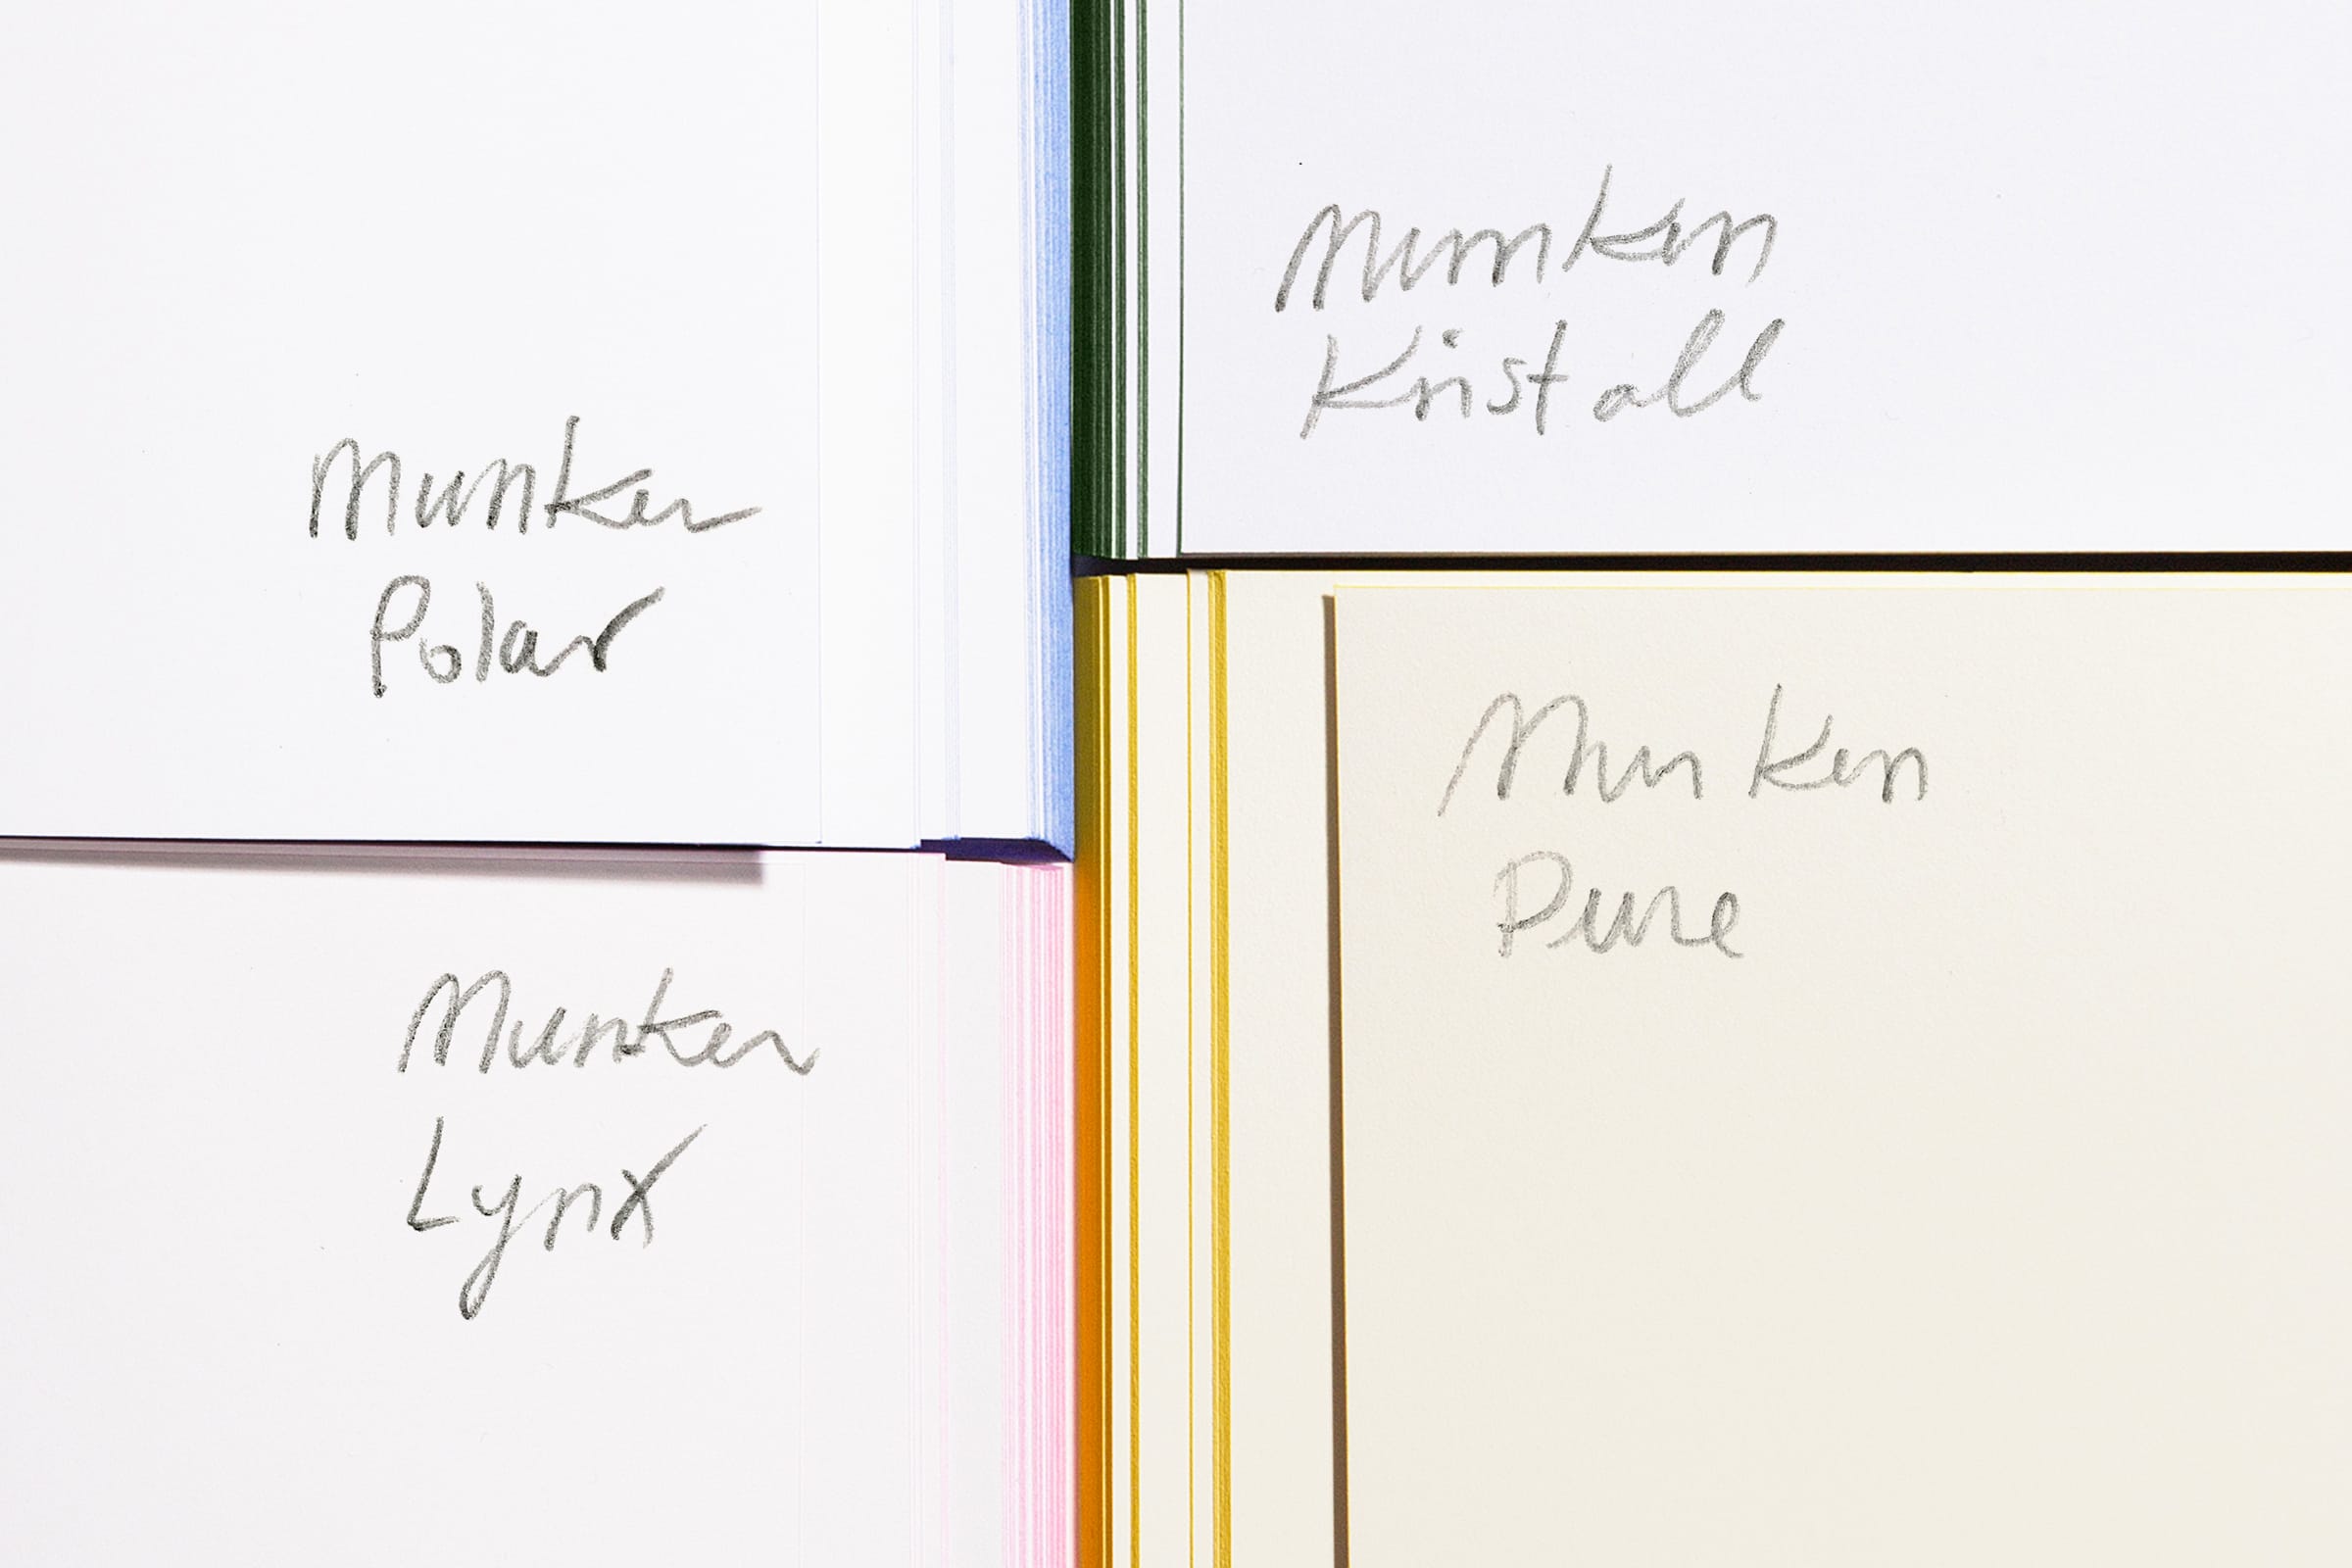 Munken
Polar
Munken
Kristall
Munken
Lynx
Munken
Pure